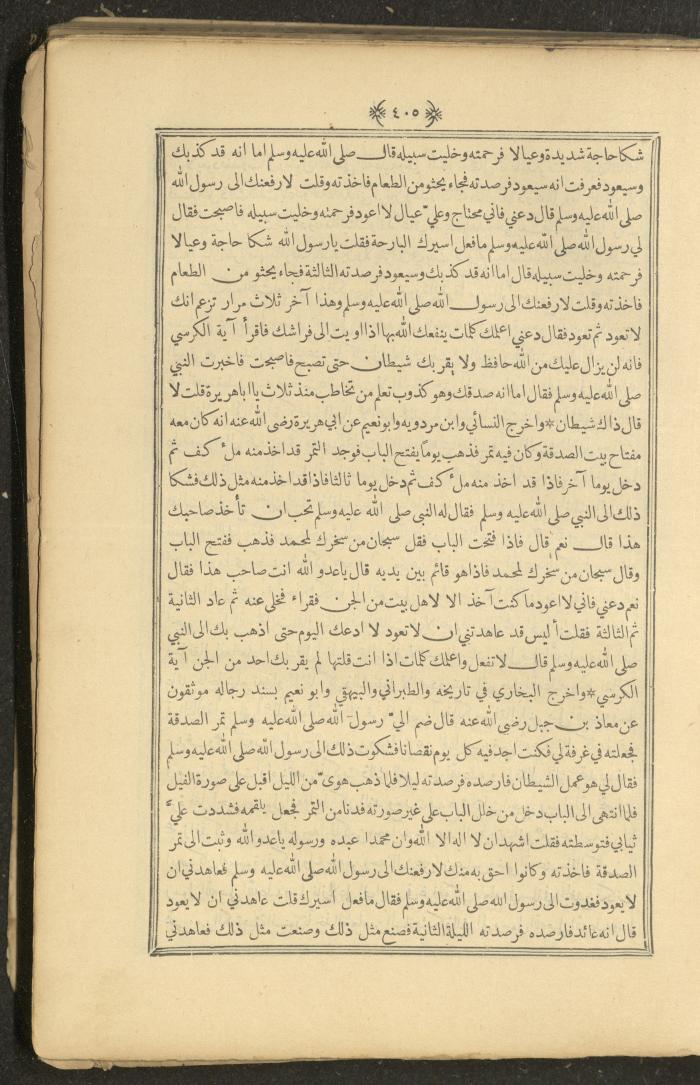 ٤٠٥
شكا حاجة شديدة وعيالا فرحمته وخليت سبيله قال صلى الله عليه وسلم اما انه قد كذبك
وسيعود فعرفت انه سيعود فرصدته فجاء يحثو من الطعام فاخذته وقلت لارفعنك الى رسول الله
صلى الله عليه وسلم قال دعني فاني محتاج وعليّ عيال لا اعود فرحمته وخليت سبيله فاصبحت فقال
لي رسول الله صلى الله عليه وسلم ما فعل اسيرك البارحة فقلت يا رسول الله شكا حاجة وعيالا
فرحمته وخليت سبيله قال اما انه قد كذبك وسيعود فرصدته الثالثة فجاء يحثو من الطعام
فاخذته وقلت لارفعنك الى رسول الله صلى الله عليه وسلم وهذا آخر ثلاث مرار تزعم انك
لا تعود ثم تعود فقال دعني اعلمك كلمات ينفعك الله بها اذا اويت الى فراشك فاقرأ آية الكرسي
فانه لن يزال عليك من الله حافظ ولا يقربك شيطان حتى تصبح فاصبحت فاخبرت النبي
صلى الله عليه وسلم فقال اما انه صدقك وهو كذوب تعلم من تخاطب منذ ثلاث يا ابا هريرة قلت لا
قال ذاك شيطان * واخرج النسائي وابن مردويه وابو نعيم عن ابي هريرة رضى الله عنه انه كان معه
مفتاح بيت الصدقة وكان فيه تمر فذهب يوماً يفتح الباب فوجد التمر قد اخذ منه ملْ كف ثم
دخل يوما آخر فاذا قد اخذ منه ملْ كف ثم دخل يوما ثالثا فاذا قد اخذ منه مثل ذلك فشكا
ذلك الى النبي صلى الله عليه وسلم فقال له النبي صلى الله عليه وسلم تحب ان تأخذ صاحبك
هذا قال نعم قال فاذا فتحت الباب فقل سبحان من سخرك لمحمد فذهب ففتح الباب
وقال سبحان من سخرك لمحمد فاذا هو قائم بين يديه قال يا عدو الله انت صاحب هذا فقال
نعم دعني فاني لا اعود ما كنت آخذ الا لاهل بيت من الجن فقراء فخلى عنه ثم عاد الثانية
ثم الثالثة فقلت أليس قد عاهدتني ان لا تعود لا ادعك اليوم حتى اذهب بك الى النبي
صلى الله عليه وسلم قال لا تفعل واعلمك كلمات اذا انت قلتها لم يقربك احد من الجن آية
الكرسي * واخرج البخاري في تاريخه والطبراني والبيهقي وابو نعيم بسند رجاله موثقون
عن معاذ بن جبل رضى الله عنه قال ضم اليّ رسول الله صلى الله عليه وسلم تمر الصدقة
فجعلته في غرفة لي فكنت اجد فيه كل يوم نقصانا فشكوت ذلك الى رسول الله صلى الله عليه وسلم
فقال لي هو عمل الشيطان فارصده فرصدته ليلا فلما ذهب هوىّ من الليل اقبل على صورة الفيل
فلما انتهى الى الباب دخل من خلل الباب على غير صورته فدنا من التمر فجعل يلقمه فشددت عليَّ
ثيابي فتوسطته فقلت اشهد ان لا اله الا الله وان محمدا عبده ورسوله يا عدو الله وثبت الى تمر
الصدقة فاخذته وكانوا احق به منك لارفعنك الى رسول الله صلى الله عليه وسلم فعاهدني ان
لا يعود فغدوت الى رسول الله صلى الله عليه وسلم فقال ما فعل اسيرك قلت عاهدني ان لا يعود
قال انه عائد فارصده فرصدته الليلة الثانية فصنع مثل ذلك وصنعت مثل ذلك فعاهدني